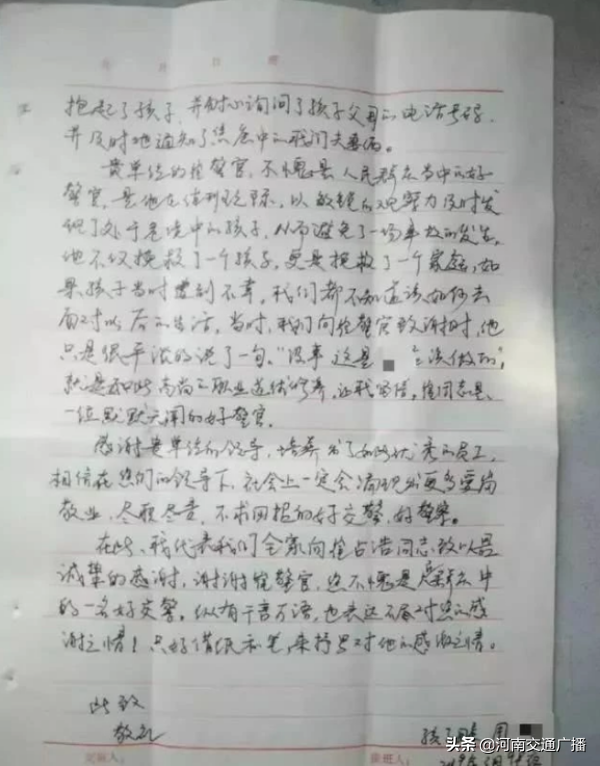 抱起了孩子，并耐心询问了孩子父母的电话号码，
并及时地通知了焦虑中的我们夫妻俩。
贵单位的崔警官，不愧是人民群众当中的好
警官，是他在值班巡逻，以敏锐的观察力及时发
现了处于危境中的孩子，从而避免了一场事故的发生，
他不仅挽救了一个孩子，更是挽救了一个家庭，如
果孩子当时遭到不幸，我们都不知道该如何去
面对以后的生活，当时，我们向崔警官致谢时，他
只是很平淡的说了一句，“没事 这是 应该做的”，
就是如此高尚的职业道德修养，让我坚信，崔同志是
一位默默无闻的好警官。
感谢贵单位的领导，培养出了如此优秀的员工，
相信在您们的领导下，社会上一定会涌现出更多爱岗
敬业、尽职尽责，不求回报的好交警，好警察。
在此，我代表我们全家向崔占浩同志致以最
诚挚的感谢，谢谢崔警官，您不愧是群众中
的一名好交警。纵有千言万语，也表达不尽对您的感
谢之情！只好借纸和笔，来抒写对他的感激之情。
此致
敬礼
孩子 周
交班人：
接班人：
头条 @河南交通广播